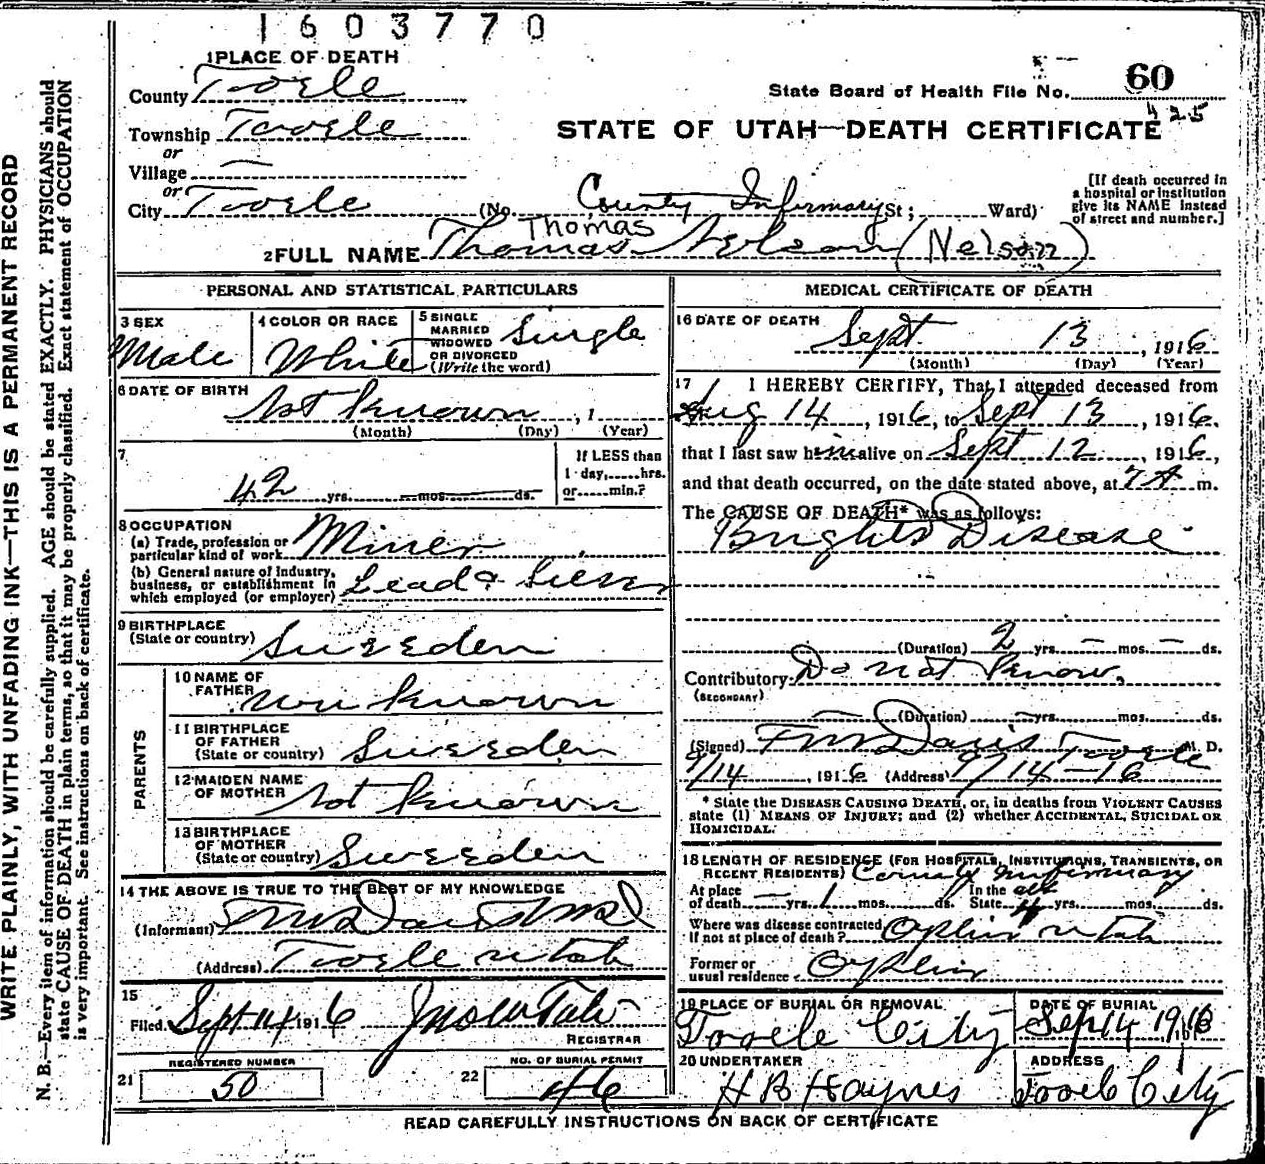 1603770
1 PLACE OF DEATH
County Tooele
State Board of Health File No. 60
425
Township Tooele
STATE OF UTAH—DEATH CERTIFICATE
or
Village —
or
City Tooele (No. County Infirmary St; Ward)
[If death occurred in a hospital or institution give its NAME instead of street and number.]
Thomas
2 FULL NAME Thomas Nelson (Nelson)
PERSONAL AND STATISTICAL PARTICULARS
3 SEX Male
4 COLOR OR RACE White
5 SINGLE MARRIED WIDOWED OR DIVORCED (Write the word) Single
6 DATE OF BIRTH
Not Known, 1
(Month) (Day) (Year)
7
42 yrs. mos. ds.
If LESS than 1 day, hrs. or min.?
8 OCCUPATION
(a) Trade, profession or particular kind of work Miner
(b) General nature of Industry, business, or establishment in which employed (or employer) Lead & Silver
9 BIRTHPLACE
(State or country) Sweeden
PARENTS
10 NAME OF FATHER Unknown
11 BIRTHPLACE OF FATHER (State or country) Sweeden
12 MAIDEN NAME OF MOTHER Not Known
13 BIRTHPLACE OF MOTHER (State or country) Sweeden
14 THE ABOVE IS TRUE TO THE BEST OF MY KNOWLEDGE
(Informant) F M Davis M D
(Address) Tooele Utah
15
Filed Sept 14 1916
REGISTRAR
REGISTERED NUMBER
21 50
NO. OF BURIAL PERMIT
22 46
MEDICAL CERTIFICATE OF DEATH
16 DATE OF DEATH
Sept. 13, 1916
(Month) (Day) (Year)
17 I HEREBY CERTIFY, That I attended deceased from
Aug 14, 1916, to Sept 13, 1916.
that I last saw him alive on Sept 12, 1916,
and that death occurred, on the date stated above, at 7 A m.
The CAUSE OF DEATH* was as follows:
Brights Disease
(Duration) 2 yrs. — mos. — ds.
Contributory Do not Know.
(SECONDARY)
(Duration) — yrs. mos. ds.
(Signed) F M Davis Tooele M. D.
9/14, 1916 (Address) 9/14-16
* State the DISEASE CAUSING DEATH, or, in deaths from VIOLENT CAUSES
state (1) MEANS OF INJURY; and (2) whether ACCIDENTAL, SUICIDAL OR
HOMICIDAL.
18 LENGTH OF RESIDENCE (FOR HOSPITALS, INSTITUTIONS, TRANSIENTS, OR
RECENT RESIDENTS) County Infirmary
At place of death — yrs. 1 mos. ds. In the State yrs. mos. ds.
Where was disease contracted
If not at place of death? Ophir Utah
Former or
usual residence Ophir
19 PLACE OF BURIAL OR REMOVAL
Tooele City
DATE OF BURIAL
Sep 14 1916
20 UNDERTAKER
H B Haynes
ADDRESS
Tooele City
READ CAREFULLY INSTRUCTIONS ON BACK OF CERTIFICATE
WRITE PLAINLY, WITH UNFADING INK—THIS IS A PERMANENT RECORD
N. B.—Every item of information should be carefully supplied. AGE should be stated EXACTLY. PHYSICIANS should
state CAUSE OF DEATH in plain terms, so that it may be properly classified. Exact statement of OCCUPATION
is very important. See instructions on back of certificate.